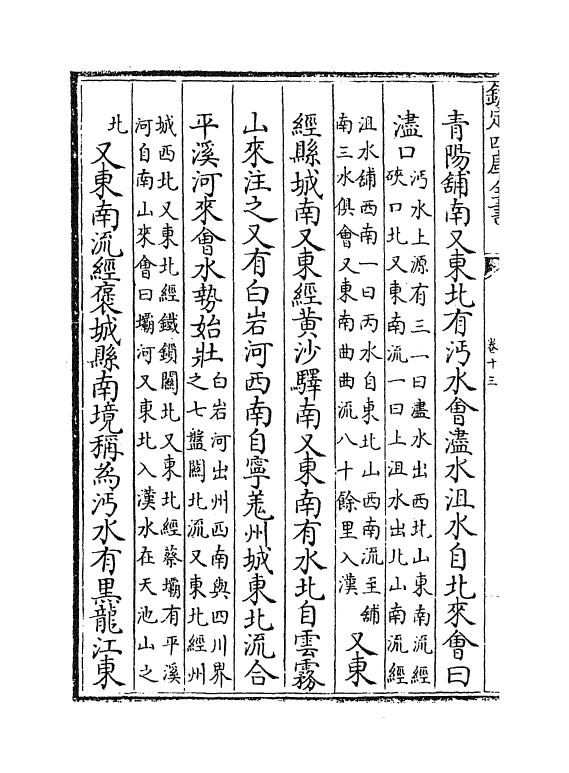 欽定四庫全書
卷十三
青陽舖南又東北有沔水會濜水沮水自北來會曰
濜口
沔水上源有三一曰濜水出西北山東南流經
硤口北又東南流一曰上沮水出北山南流經
沮水舖西南一曰丙水自東北山西南流至舖
南三水俱會又東南曲曲流八十餘里入漢
又東
經縣城南又東經黃沙驛南又東南有水北自雲霧
山來注之又有白岩河西南自寧羗州城東北流合
平溪河來會水勢始壯
白岩河出州西南與四川界
之七盤關北流又東北經州
城西北又東北經鐵鎖關北又東北經蔡壩有平溪
河自南山來會曰壩河又東北入漢水在天池山之
北
又東南流經褒城縣南境稱為沔水有黑龍江東